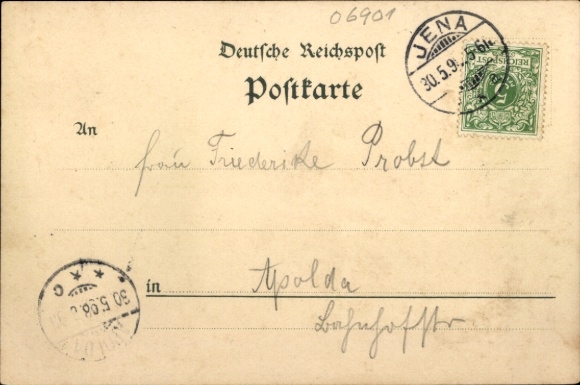 06901
JENA
30.5.9
5-6N.
a
REICHSPOST
5
Deutsche Reichspost
Postkarte
An
Frau Friederike Probst
in Apolda
Bahnhofstr
30.5.98.
C